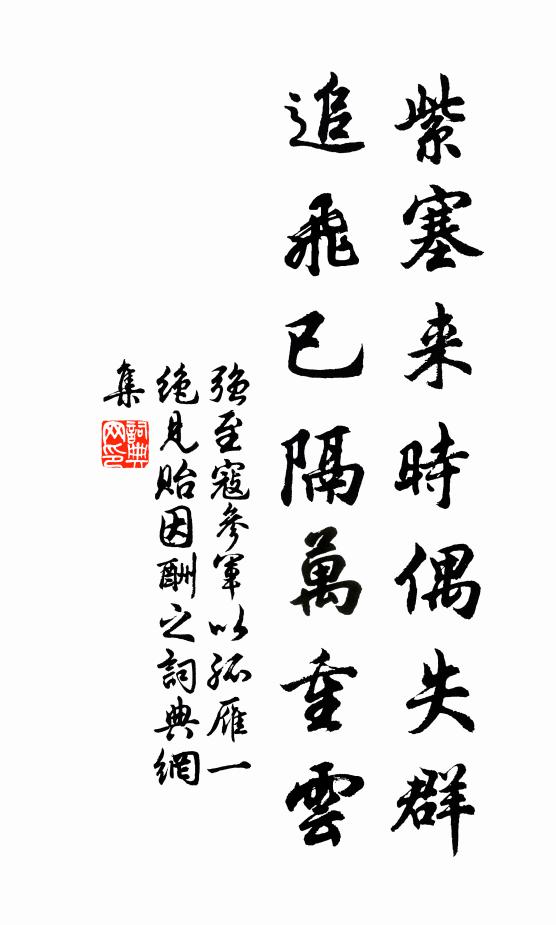 紫塞来時偶失群
追飛已隔萬重雲
強至寇參軍以孤雁一
絶見貽因酬之詞典網
集
詞典
网印